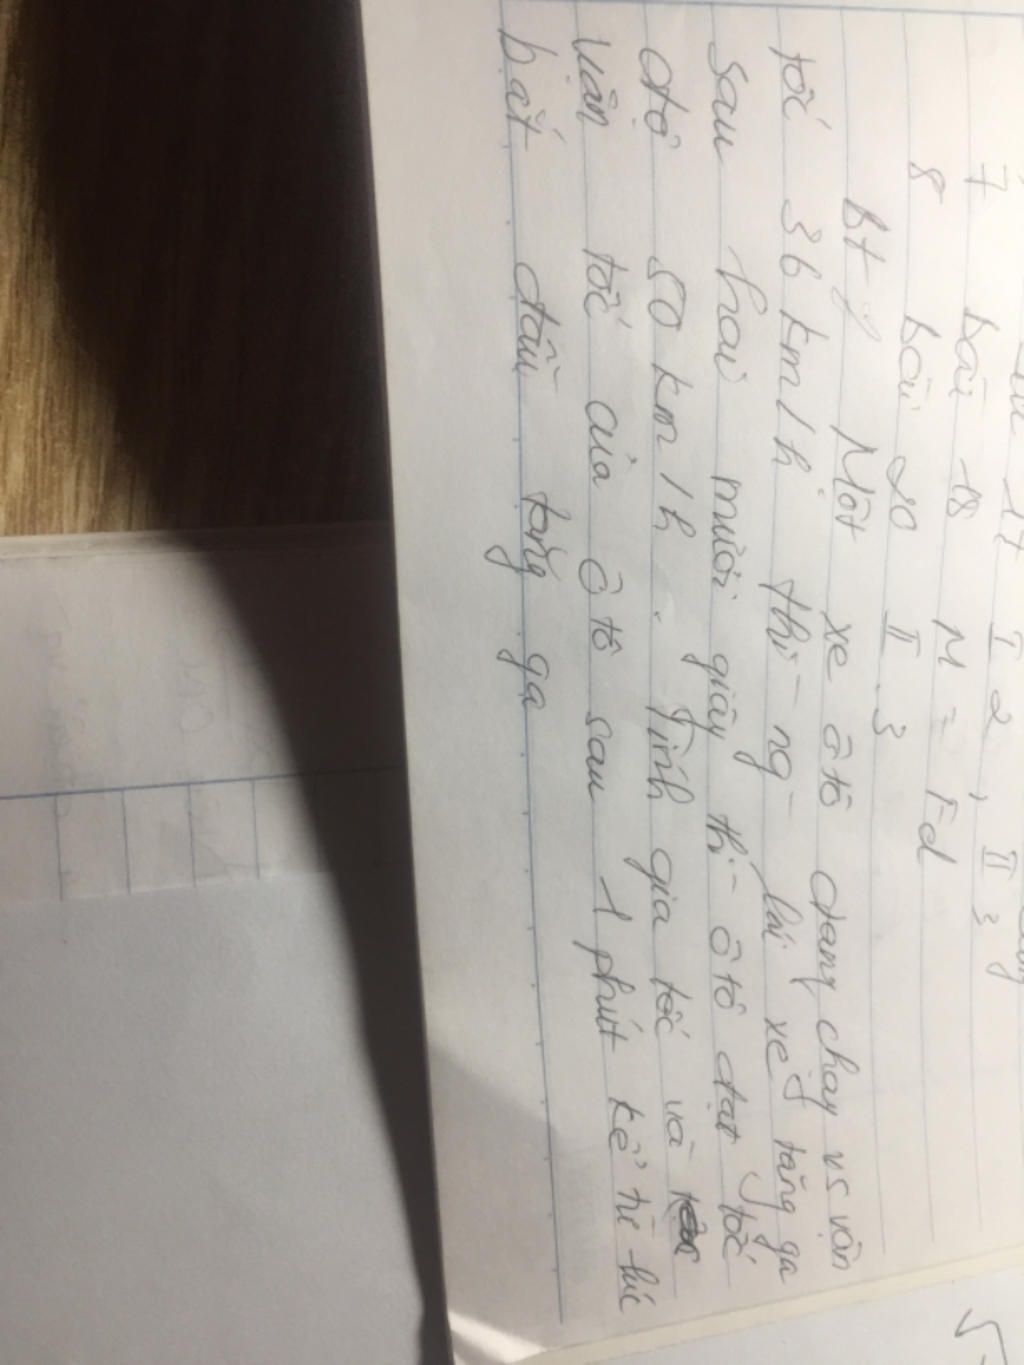 17 I 2, II 3
7 bài 18 M = Fd
8 bài 20 II 3
BT Một xe ô tô đang chạy vs vận
tốc 36 km/h thì ng lái xe tăng ga
sau hai mươi giây thì ô tô đạt tốc
độ 50 km/h. Tính gia tốc và
vận tốc của ô tô sau 1 phút kể từ lúc
bắt đầu tăng ga